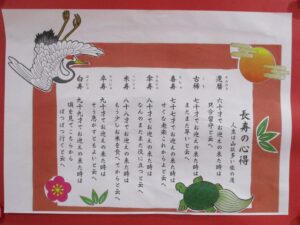 長寿の心得
人生は山坂多い旅の道
還暦 六十才でお迎えの来た時は
只今留守と云へ
古稀 七十才でお迎えの来た時は
まだまだ早いと云へ
喜寿 七十七才でお迎えの来た時は
せくな老楽これからよと云へ
傘寿 八十才でお迎えの来た時は
なんのまだまだ役に立つと云へ
米寿 八十八才でお迎えの来た時は
もう少しお米を食べてからと云へ
卒寿 九十才でお迎えの来た時は
そう急がずともよいと云へ
白寿 九十九才でお迎えの来た時は
頃を見てこちらから
ぼつぼつ行くと云へ